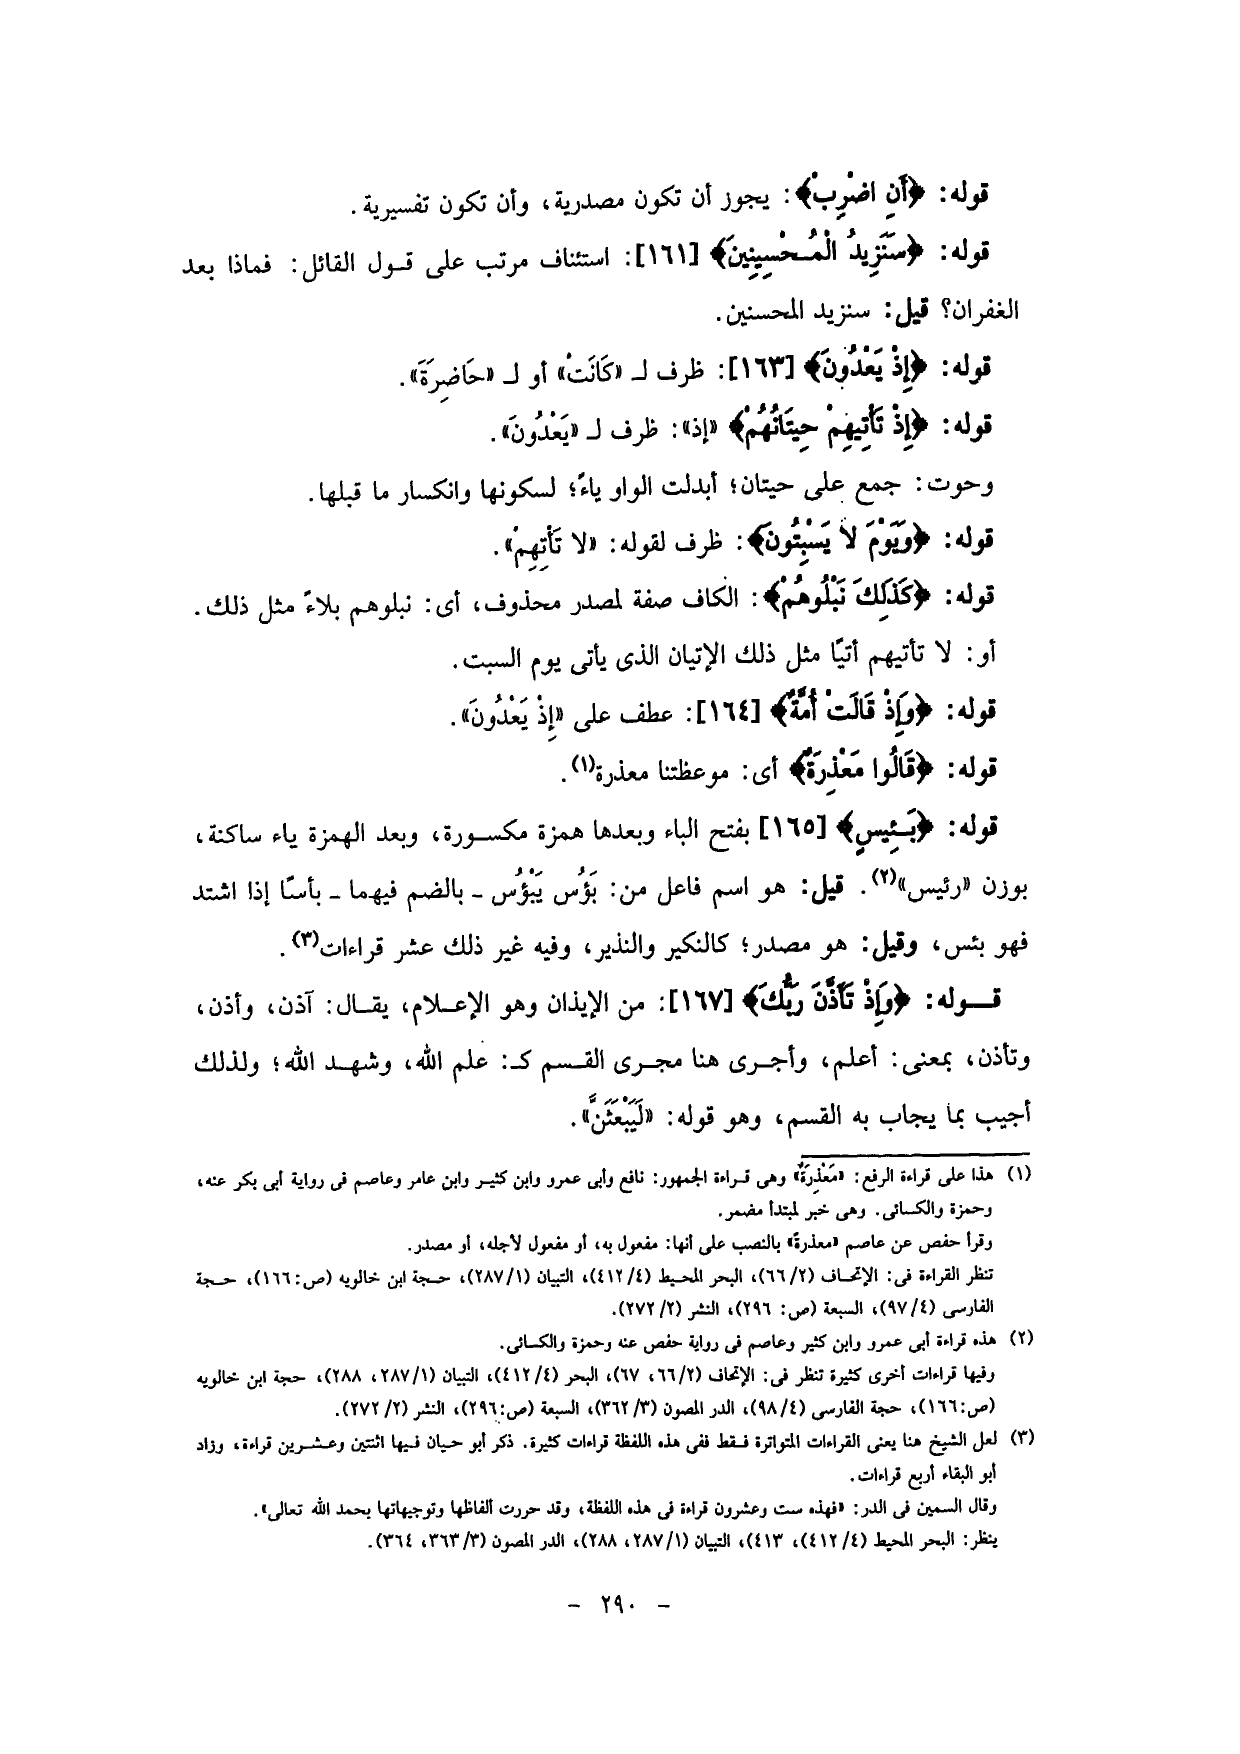 قوله: ﴿أَنِ اضْرِبْ﴾: يجوز أن تكون مصدرية، وأن تكون تفسيرية.
قوله: ﴿سَنَزِيدُ الْمُحْسِنِينَ﴾ [١٦١]: استئناف مرتب على قول القائل: فماذا بعد
الغفران؟ قيل: سنزيد المحسنين.
قوله: ﴿إِذْ يَعْدُونَ﴾ [١٦٣]: ظرف لـ «كَانَتْ» أو لـ «حَاضِرَةَ».
قوله: ﴿إِذْ تَأْتِيهِمْ حِيتَانُهُمْ﴾ «إذ»: ظرف لـ «يَعْدُونَ».
وحوت: جمع على حيتان؛ أبدلت الواو ياءً؛ لسكونها وانكسار ما قبلها.
قوله: ﴿وَيَوْمَ لاَ يَسْبِتُونَ﴾: ظرف لقوله: «لا تَأْتِهِمْ».
قوله: ﴿كَذَلِكَ نَبْلُوهُمْ﴾: الكاف صفة لمصدر محذوف، أى: نبلوهم بلاءً مثل ذلك.
أو: لا تأتيهم أتيًا مثل ذلك الإتيان الذى يأتى يوم السبت.
قوله: ﴿وَإِذْ قَالَتْ أُمَّةٌ﴾ [١٦٤]: عطف على «إِذْ يَعْدُونَ».
قوله: ﴿قَالُوا مَعْذِرَةٌ﴾ أى: موعظتنا معذرة(١).
قوله: ﴿بَئِيسٍ﴾ [١٦٥] بفتح الباء وبعدها همزة مكسورة، وبعد الهمزة ياء ساكنة،
بوزن «رئيس»(٢). قيل: هو اسم فاعل من: بَؤُس يَبْؤُس ـ بالضم فيهما ـ بأسًا إذا اشتد
فهو بئس، وقيل: هو مصدر؛ كالنكير والنذير، وفيه غير ذلك عشر قراءات(٣).
قوله: ﴿وَإِذْ تَأَذَّنَ رَبُّكَ﴾ [١٦٧]: من الإيذان وهو الإعلام، يقال: آذن، وأذن،
وتأذن، بمعنى: أعلم، وأجرى هنا مجرى القسم كـ: علم الله، وشهد الله؛ ولذلك
أجيب بما يجاب به القسم، وهو قوله: «لَيَبْعَثَنَّ».
(١) هذا على قراءة الرفع: «مَعْذِرَةٌ» وهى قراءة الجمهور: نافع وأبى عمرو وابن كثير وابن عامر وعاصم فى رواية أبى بكر عنه،
وحمزة والكسائى. وهى خبر لمبتدأ مضمر.
وقرأ حفص عن عاصم «معذرةً» بالنصب على أنها: مفعول به، أو مفعول لأجله، أو مصدر.
تنظر القراءة فى: الإتحاف (٦٦/٢)، البحر المحيط (٤١٢/٤)، التبيان (٢٨٧/١)، حجة ابن خالويه (ص:١٦٦)، حجة
الفارسى (٩٧/٤)، السبعة (ص: ٢٩٦)، النشر (٢٧٢/٢).
(٢) هذه قراءة أبى عمرو وابن كثير وعاصم فى رواية حفص عنه وحمزة والكسائى.
وفيها قراءات أخرى كثيرة تنظر فى: الإتحاف (٦٦/٢، ٦٧)، البحر (٤١٢/٤)، التبيان (٢٨٧/١، ٢٨٨)، حجة ابن خالويه
(ص:١٦٦)، حجة الفارسى (٩٨/٤)، الدر المصون (٣٦٢/٣)، السبعة (ص:٢٩٦)، النشر (٢٧٢/٢).
(٣) لعل الشيخ هنا يعنى القراءات المتواترة فقط ففى هذه اللفظة قراءات كثيرة. ذكر أبو حيان فيها اثنتين وعشرين قراءة، وزاد
أبو البقاء أربع قراءات.
وقال السمين فى الدر: «فهذه ست وعشرون قراءة فى هذه اللفظة، وقد حررت ألفاظها وتوجيهاتها بحمد الله تعالى».
ينظر: البحر المحيط (٤١٢/٤)، ٤١٣)، التبيان (٢٨٧/١، ٢٨٨)، الدر المصون (٣٦٣/٣، ٣٦٤).
- ٢٩٠ -